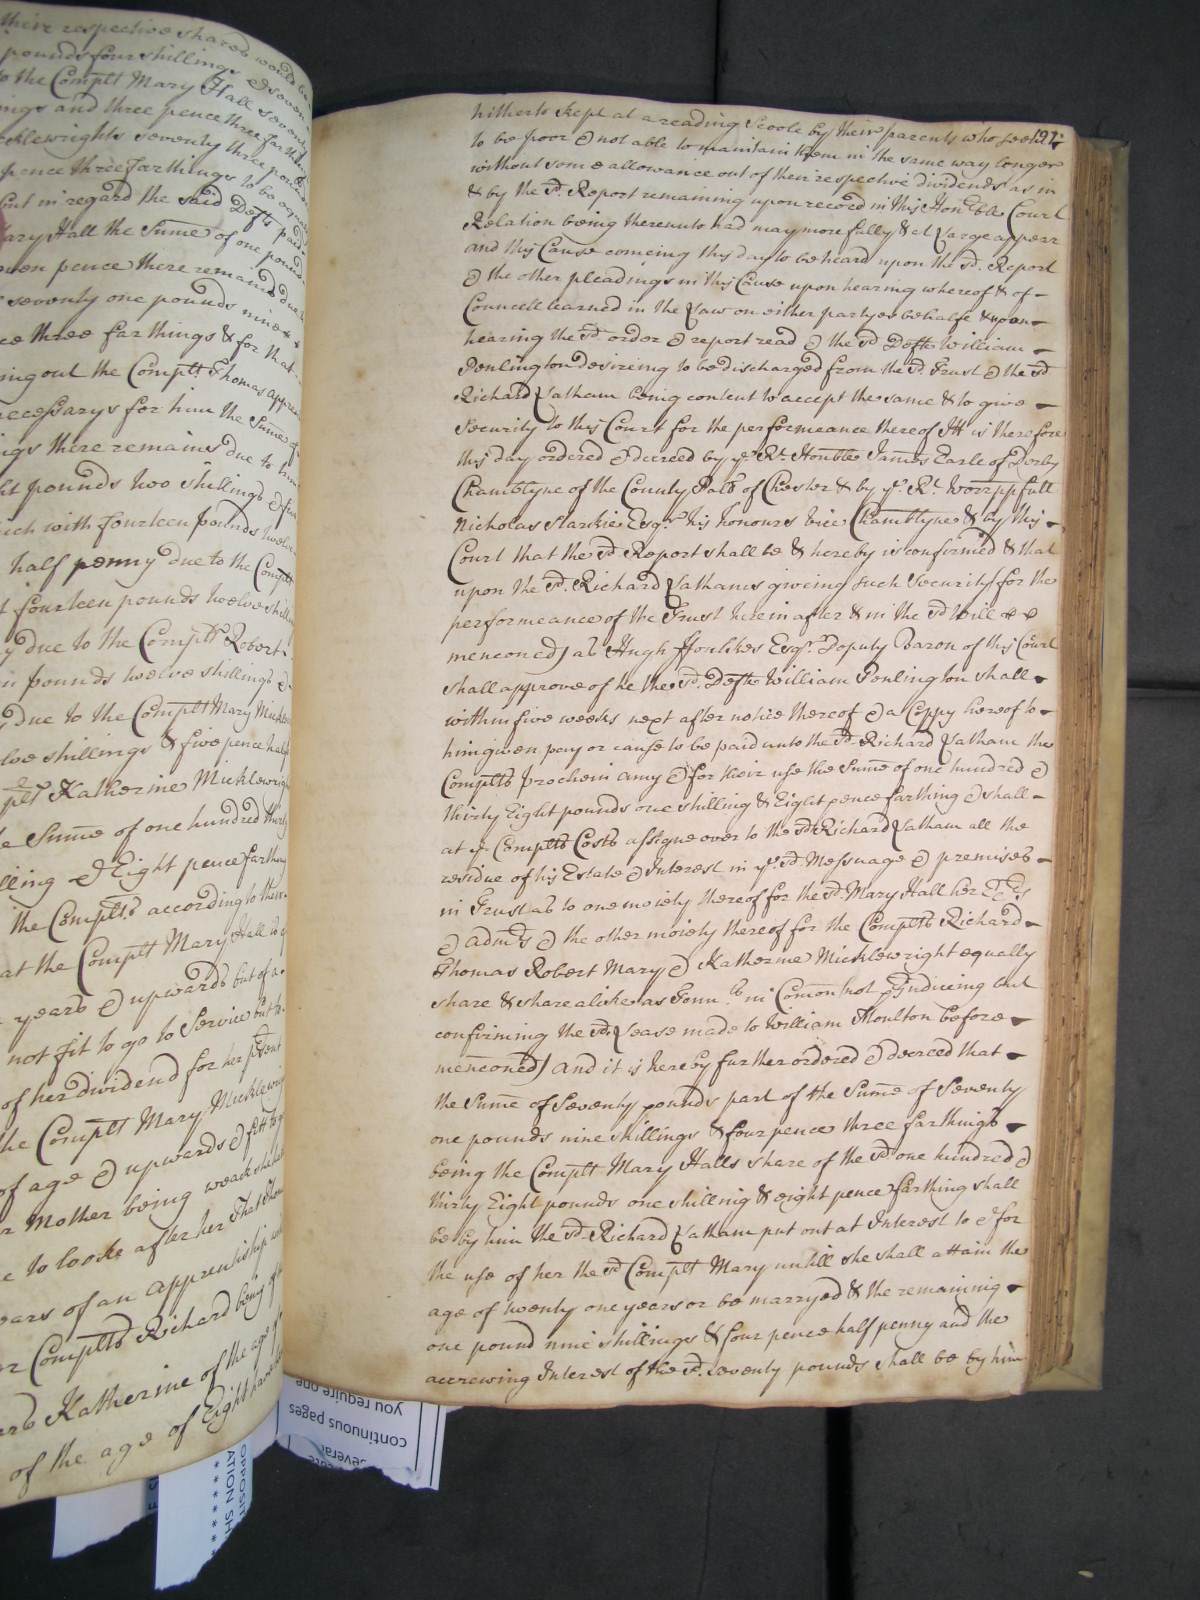 their respective shares would be
pounds four shillings & seven
to the Complt Mary Hall seventy
and three pence three farthings
seventy three pounds
pence three farthings to be
but in regard the said Defts paid
Mary Hall the Sume of one pound
pence there remained due
seventy one pounds nine
three farthings & for that
out the Complt. Thomas
necessarys for him the Sume of
there remains due to him
pounds two shillings &
with fourteen pounds twelve
half penny due to the Complt
fourteen pounds twelve
due to the Complt Robert
pounds twelve shillings &
due to the Complt Mary
shillings & five pence half
Katherine Micklewright
Sume of one hundred thirty
& Eight pence farthing
the Complts according to their
at the Complt Mary Hall is
years & upwards but of a
not fit to go to Service but
of her dividend for her
the Complt Mary
of age & upwards &
Mother being weak she
to looke after her That
years of an apprentiship
Complts Richard being
Katherine of the age
of the age of Eight
hitherto kept at a reading Scoole by their parents who seem 191:
to be poor & not able to maintain them in the same way longer
without some allowance out of their respective dividends as in
& by the sd. Report remaining upon record in this Honble Court
Relation being thereunto had may more fully & at Large appear
and this Cause comeing this day to be heard upon the sd. Report
& the other pleadings in this Cause upon hearing whereof & of
Councell learned in the Law on either partyes behalfe & upon
hearing the sd order & report read & the sd Deft William
Penlington desireing to be discharged from the sd Trust & the sd
Richard Latham being content to accept the same & to give
Security to this Court for the performeance thereof Itt is therefore
this day ordered & decreed by ye Rt Honble James Earle of Derby
Chambtyne of the County Palt of Chester & by ye Rt Worppfull
Nicholas Starkie Esqr his honours vice Chambtyne & by this
Court that the sd Report shall be & hereby is confirmed & that
upon the sd. Richard Lathams giveing such Security (for the
performeance of the Trust herein after & in the sd Will
menconed) as Hugh ffoulkes Esqr. Deputy Baron of this Court
shall approve of he the sd. Deft William Penlington shall
within five weeks next after notice thereof & a Coppy hereof to
him given pay or cause to be paid unto the sd. Richard Latham the
Complts prochein amy & for their use the Sume of one hundred &
thirty Eight pounds one shilling & Eight pence farthing & shall
at ye Complts Costs assigne over to the sd Richard Latham all the
residue of his Estate & Interest in ye sd. Messuage & premises
in Trust as to one moiety thereof for the sd. Mary Hall her
& admrs & the other moiety thereof for the Complts Richard
Thomas Robert Mary & Katherine Micklewright equally
share & share alike as Tennts in Comon (not but
confirming the sd. Lease made to William Moulton before
menconed) and it is hereby further ordered & decreed that
the Sume of Seventy pounds part of the Sume of Seventy
one pounds nine shillings & four pence three farthings
being the Complt Mary Halls share of the sd one hundred &
thirty Eight pounds one shilling & eight pence farthing shall
be by him the sd. Richard Latham put out at Interest to & for
the use of her the sd Complt Mary untill she shall attain the
age of twenty one years or be marryed & the remaining
one pound nine shillings & four pence half penny and the
accrewing Interest of the sd. seventy pounds shall be by him
you require one
continuous pages
OPPOSIT
ATION SH